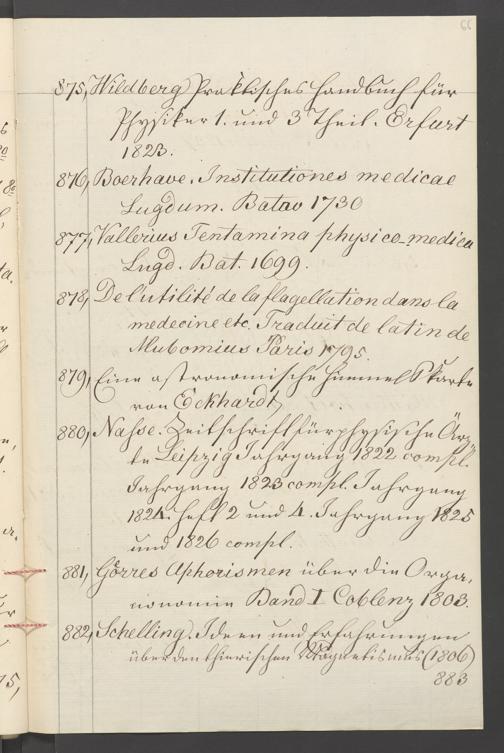 66
875, Wildberg Praktisches Handbuch für
Physiker 1. und 3 Theil. Erfurt
1823.
876, Boerhave. Institutiones medicae
Lugdum. Batav 1730
877, Vallerius Tentamina physico-medica
Lugd. Bat. 1699.
878, De l'utilité de la flagellation dans la
medecine etc. Traduit de latin de
Mubomius Paris 1795.
879, Eine astronomische Himmelskarte
von Eckhardt
880, Nahse. Zeitschrift für physische Ärz
te Leipzig Jahrgang 1822 compl.
Jahrgang 1823 compl. Jahrgang
1824. Heft 2 und 4. Jahrgang 1825
und 1826 compl.
881, Görres Aphorismen über die Orga,
nonomie Band I Coblenz 1803.
882, Schelling. Ideen und Erfahrungen
über den thierischen Magnetismus (1806)
883